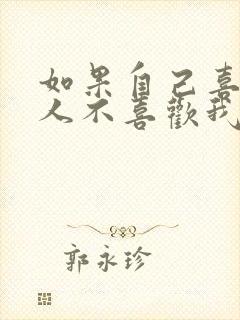 如果自己喜
人不喜歡我
郭永珍